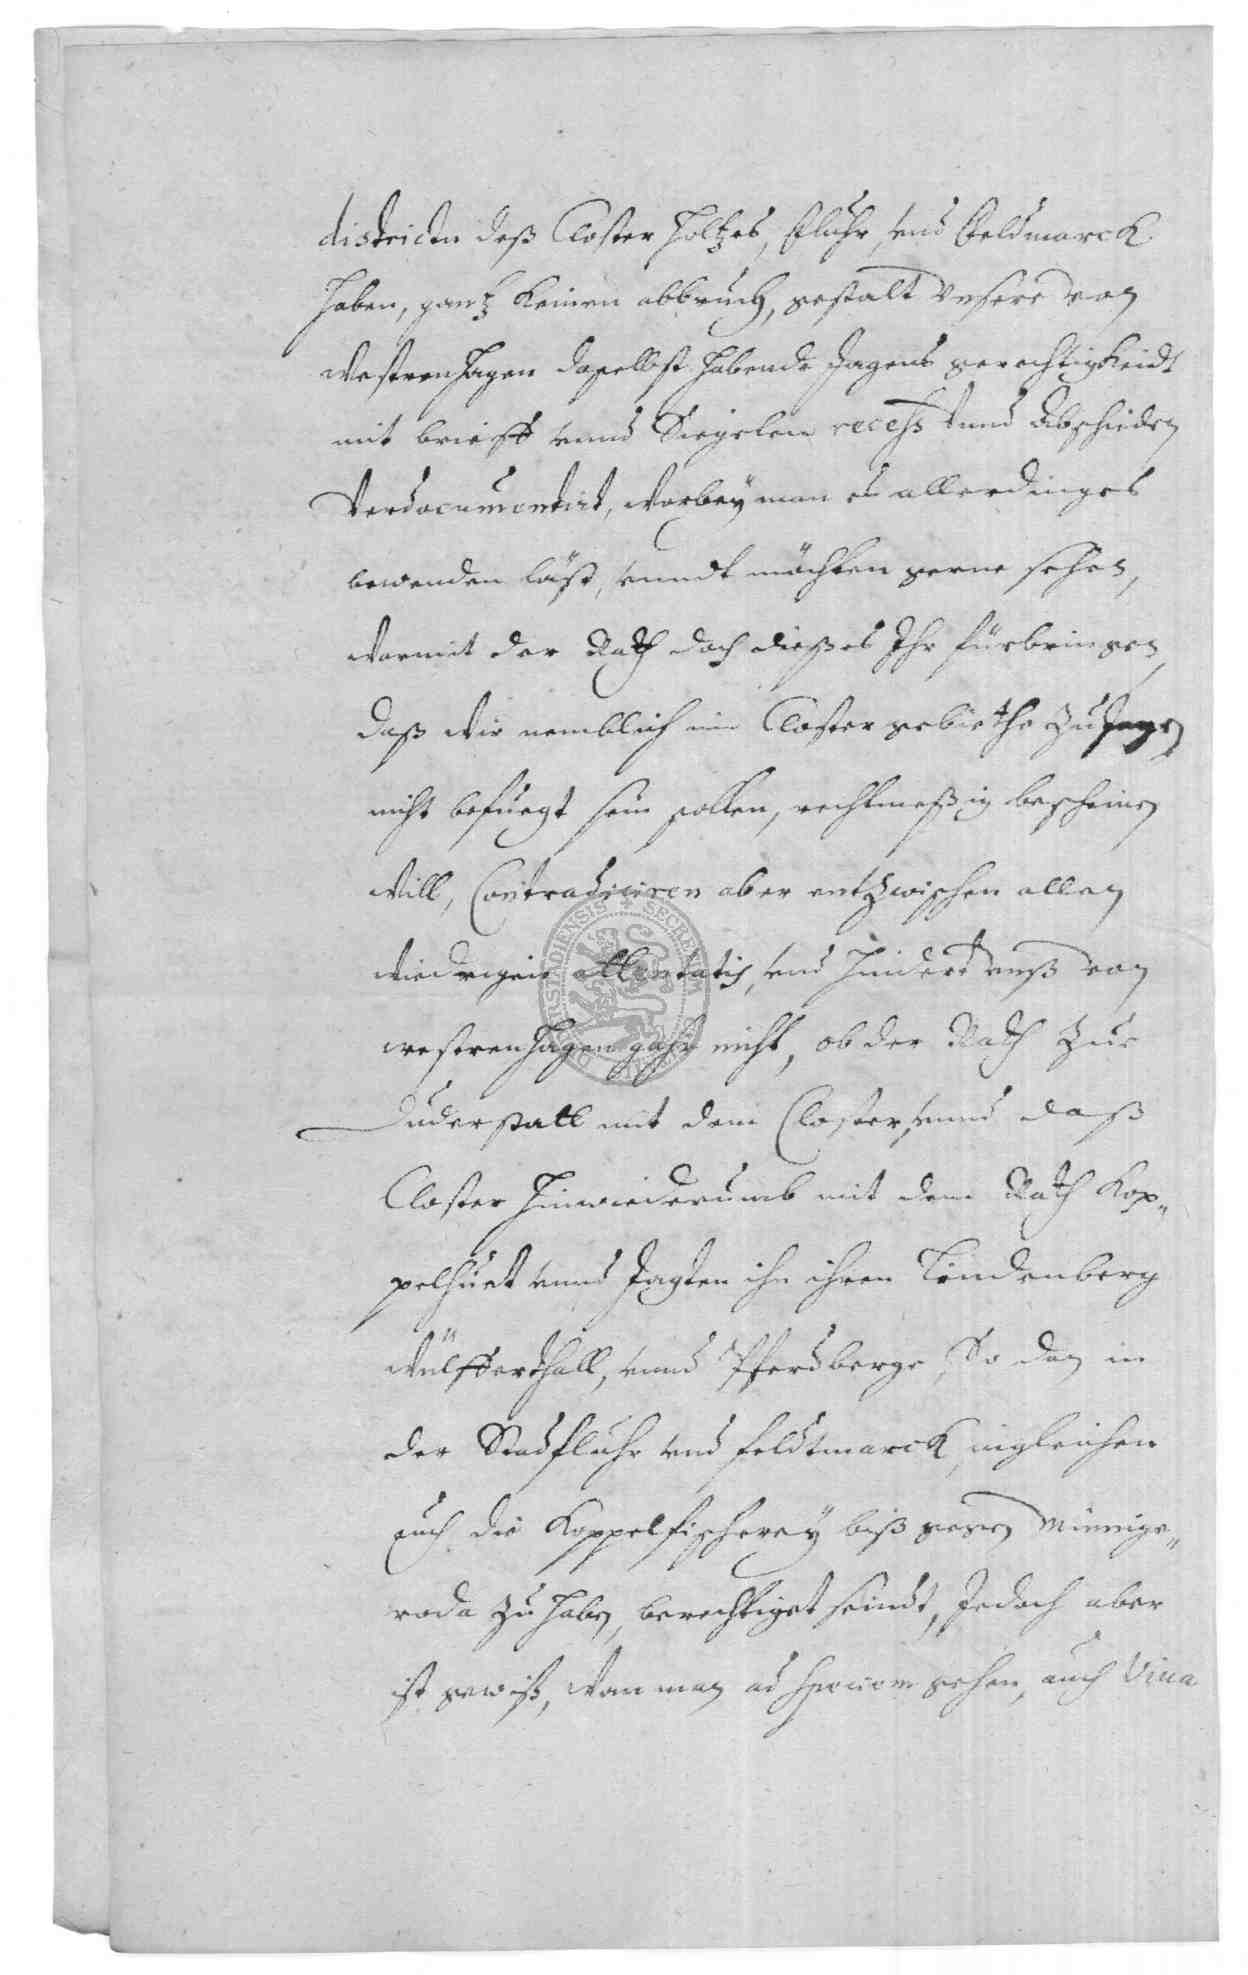 districtu deß Closter Holtzes, Fluhr, vnd Feldmarck
haben, gantz keinen abbruch, gestalt Vnsere von
Westernhagen daselbst habende Jagens gerechtigkeidt
mit brieff vnnd Siegelen recess vnnd Abschieden
Verdocumentirt, Warbey man es allerdinges
bewenden läst, vnndt möchten gerne sehen,
Warmit der Rath doch dießes Ihr fürbringen
daß Wir nemblich im Closter gebiethe zu Jagen
nicht befuegt sein sollen, rechtmeßig bescheinen
Will, Contradiciren aber entzwischen allen
Wiedrigen attentatis, vnd hindert vnß von
westernhagen gahr nicht, ob der Rath zur
Duderstatt mit dem Closter, vnnd daß
Closter hinwiederumb mit dem Rath Kop„
pelhuet vnnd Jagten ihn ihren Lindenberg
Wülfferthall, vnnd Pferdberge, So dan in
der Stadfluhr vnd feldtmarck, ingleichen
auch die Koppelfischerey biß gegen Minnige„
roda zu haben, berechtiget seindt, Jedoch aber
ist gewiß, Wan man ad gehen, auch
DUDERSTADIENSIS SECRETUM